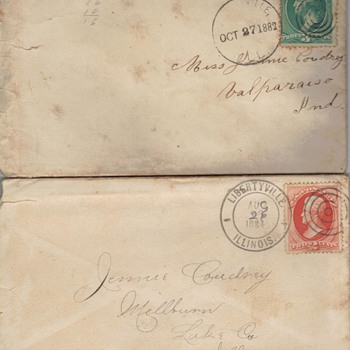 VILLE
OCT 27 1882
ILL
Miss Jennie Coudrey
Valparaiso
Ind.
LIBERTYVILLE
AUG
ILLINOIS.
Jennie Coudrey
Millburn
Lake Co